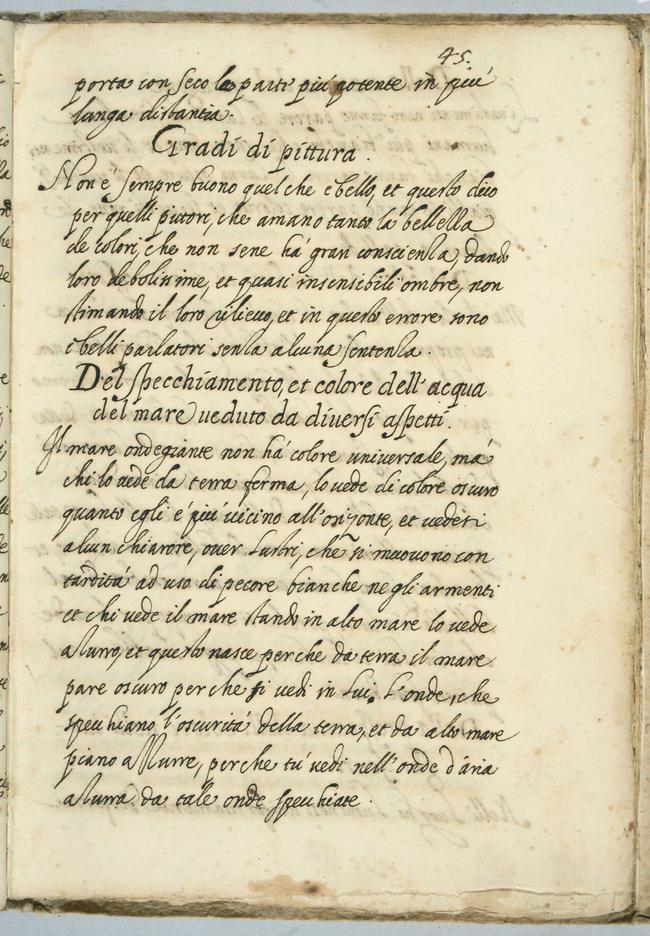 45.
porta con seco le parti più potente in più
lunga distantia.
Gradi di pittura.
Non è sempre buono quel che è bello, et questo dico
per quelli pittori, che amano tanto la bellezza
de colori, che non sene hà gran conscienza, dando
loro debolissime, et quasi insensibili ombre, non
stimando il loro rilievo, et in questo errore sono
i belli parlatori senza alcuna sentenza.
Del specchiamento, et colore dell'acqua
del mare veduto da diversi aspetti.
Il mare ondegiante non hà colore universale, mà
chi lo vede da terra ferma, lo vede di colore oscuro
quanto egli è più vicino all'orizonte, et vedesi
alcun chiarore, over lustri, che si muovono con
tardità ad uso di pecore bianche negli armenti
et chi vede il mare stando in alto mare lo vede
azurro, et questo nasce perche da terra il mare
pare oscuro perche si vedi in lui. l'onde, che
specchiano l'oscurità della terra, et da alto mare
piano azzurre, perche tù vedi nell'onde d'aria
azurra da tale onde specchiate.